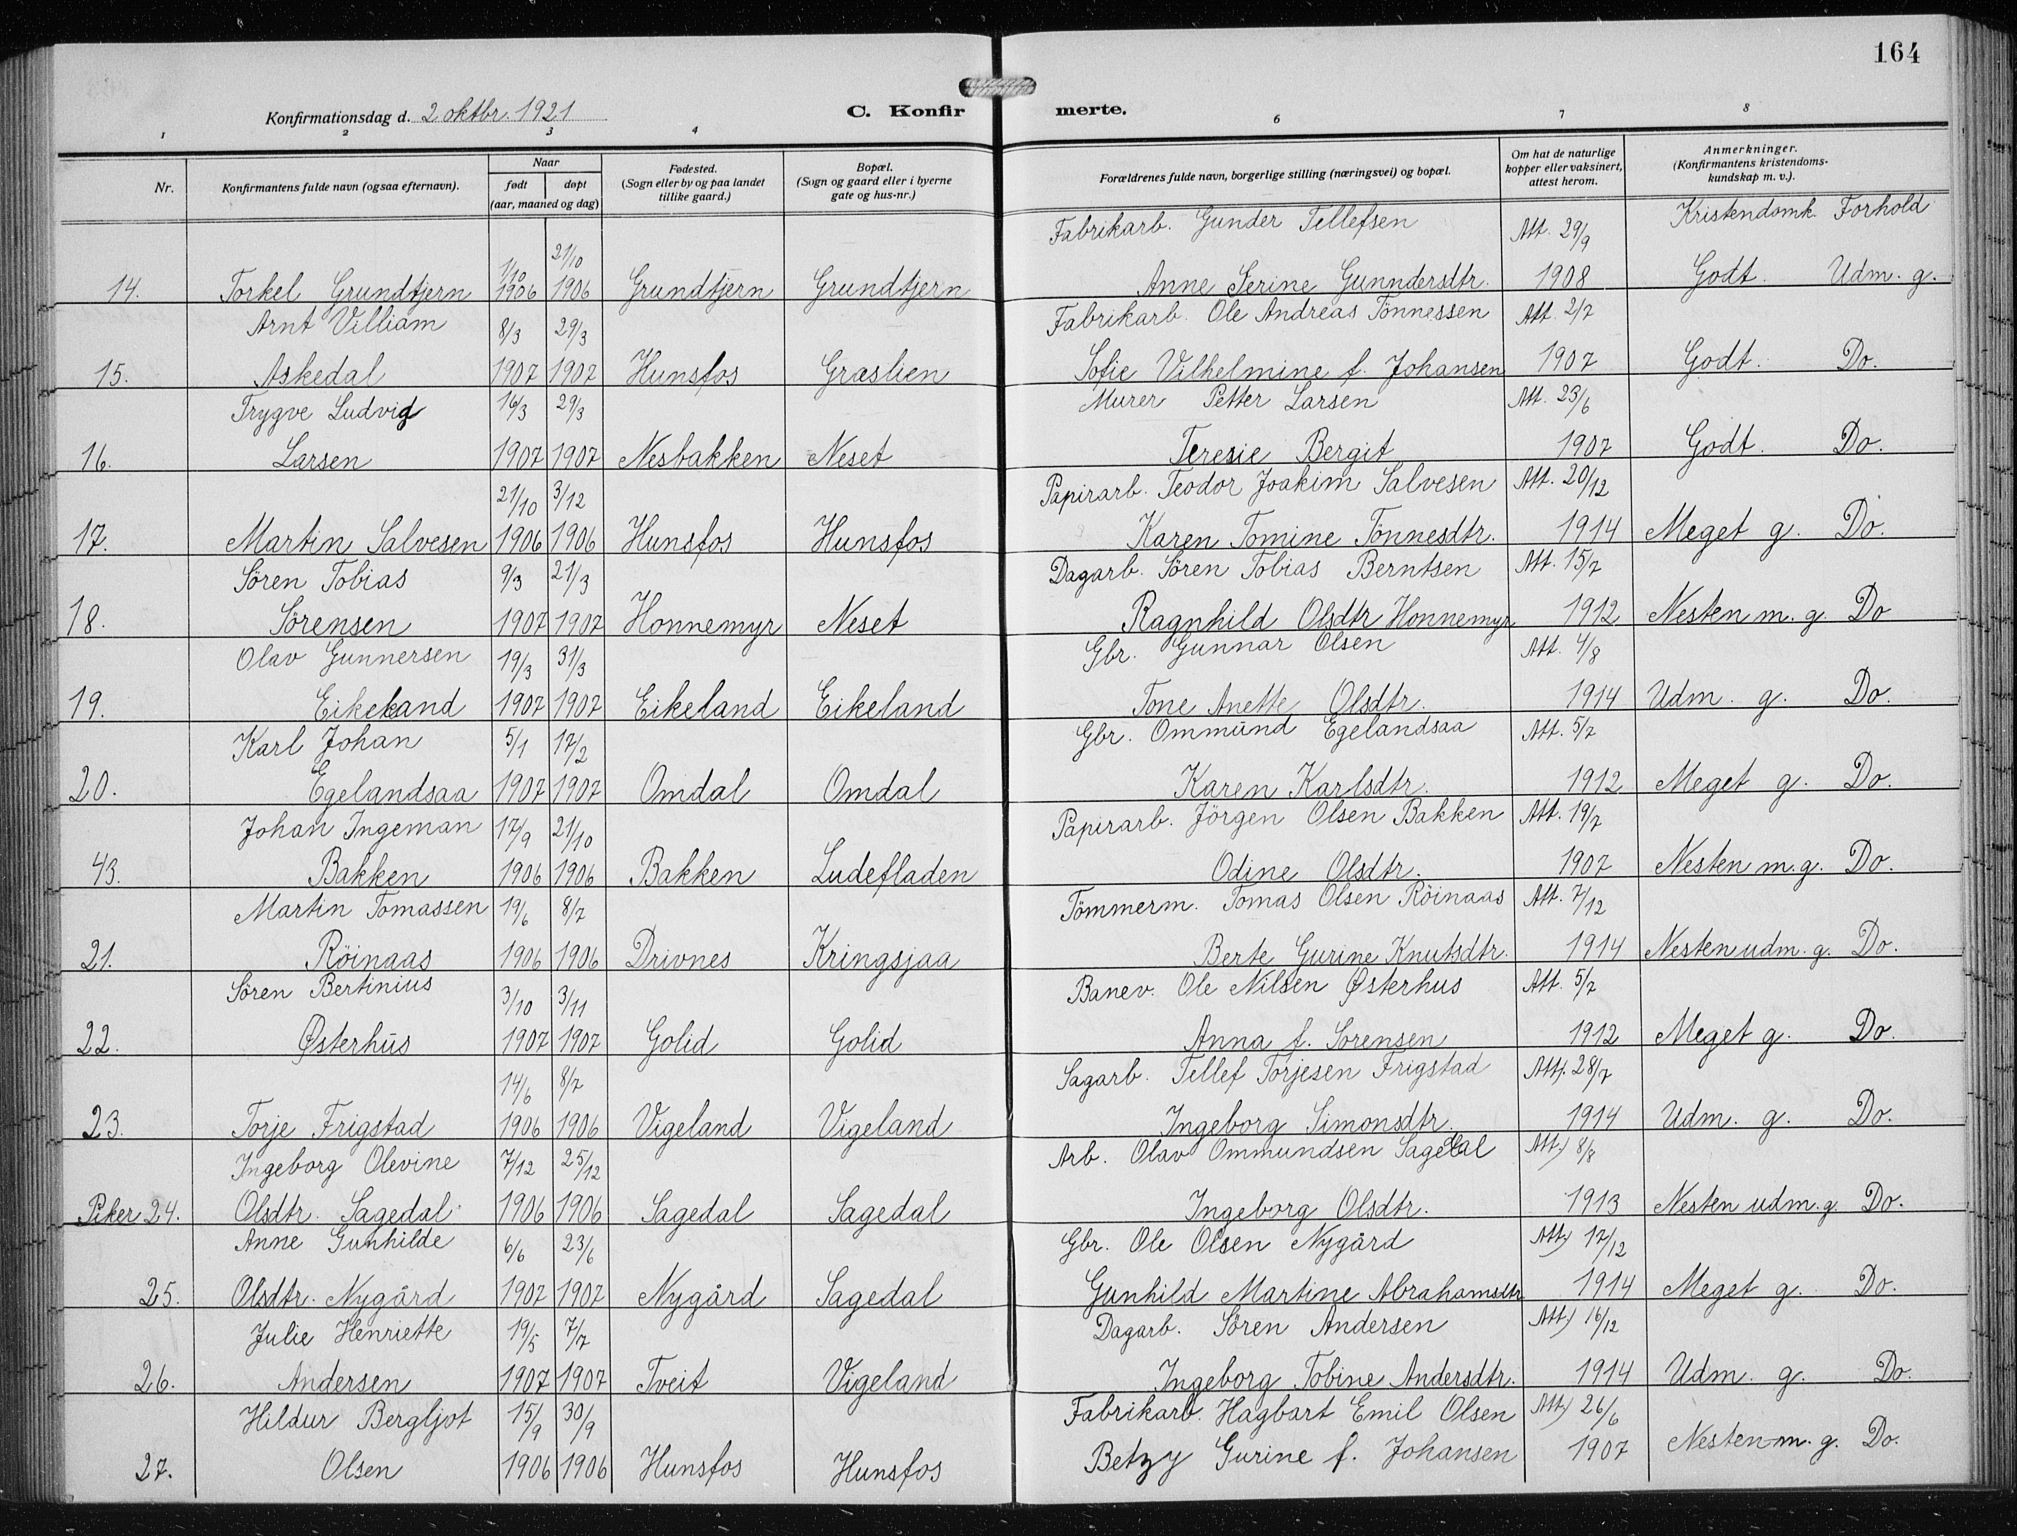 164
Konfirmationsdag d. 2 oktbr. 1921
C. Konfir merte.
1 2 3 4 6 7 8
Nr.
Konfirmantens fulde navn (ogsaa efternavn).
Naar
født døpt
(aar, maaned og dag)
Fødested.
(Sogn eller by og paa landet
tillike gaard.)
Bopæl.
(Sogn og gaard eller i byerne
gate og hus-nr.)
Forældrenes fulde navn, borgerlige stilling (næringsvei) og bopæl.
Om hat de naturlige
kopper eller vaksinert,
attest herom.
Anmerkninger.
(Konfirmantens kristendoms-
kundskap m. v.).
1/10 21/10 Fabrikarb. Gunder Tellefsen Att. 29/9 Kristendomk. Forhold
14. Torkel Grundtjern 1906 1906 Grundtjern Grundtjern Anne Serine Gunndersdtr. 1908 Godt. Udm. g.
Arnt Villiam 8/3 29/3 Fabrikarb. Ole Andreas Tönnessen Att. 2/7
15. Askedal 1907 1907 Hunsfos Græslien Sofie Vilhelmine f. Johansen 1907 Godt. Do.
Trygve Ludvig 16/3 29/3 Murer Petter Larsen Att. 23/6
16. Larsen 1907 1907 Nesbakken Neset Teresie Bergit 1907 Godt. Do.
21/10 3/12 Papirarb. Teodor Joakim Salvesen Att. 20/12
17. Martin Salvesen 1906 1906 Hunsfos Hunsfos Karen Tomine Tönnesdtr. 1914 Meget g. Do.
Sören Tobias 9/3 21/3 Dagarb. Sören Tobias Berntsen Att. 15/7
18. Sörensen 1907 1907 Honnemyr Neset Ragnhild Olsdtr Honnemyr 1912 Nesten m. g. Do
Olav Gunnersen 19/3 31/3 Gbr. Gunnar Olsen Att. 4/8
19. Eikeland 1907 1907 Eikeland Eikeland Tone Anette Olsdtr. 1914 Udm. g. Do.
Karl Johan 5/1 17/2 Gbr. Ommund Egelandsaa Att. 5/7
20. Egelandsaa 1907 1907 Omdal Omdal Karen Karlsdtr. 1912 Meget g. Do.
Johan Ingeman 17/9 21/10 Papirarb. Jörgen Olsen Bakken Att. 19/7
43. Bakken 1906 1906 Bakken Ludefladen Odine Olsdtr. 1907 Nesten m. g. Do.
Martin Tomassen 19/6 8/7 Tömmerm. Tomas Olsen Röinaas Att. 7/12
21. Röinaas 1906 1906 Drivnes Kringsjaa Berte Gurine Knutsdtr. 1914 Nesten udm. g. Do.
Sören Bertinius 3/10 3/11 Banev. Ole Nilsen Østerhus Att. 5/7
22. Østerhus 1907 1907 Golid Golid Anna f. Sörensen 1912 Meget g. Do.
14/6 8/7 Sagarb. Tellef Torjesen Frigstad Att. 28/7
23. Torje Frigstad 1906 1906 Vigeland Vigeland Ingeborg Simonsdtr. 1914 Udm. g. Do.
Ingeborg Olevine 7/12 25/12 Arb. Olav Ommundsen Sagedal Att) 8/8
Piker 24. Olsdtr. Sagedal. 1906 1906 Sagedal Sagedal Ingeborg Olsdtr. 1913 Nesten udm. g. Do.
Anne Gunhilde 6/6 23/6 Gbr. Ole Olsen Nygård Att) 17/12
25. Olsdtr. Nygård 1907 1907 Nygård Sagedal Gunhild Martine Abrahamsdtr 1914 Meget g. Do.
Julie Henriette 19/5 7/7 Dagarb. Sören Andersen Att) 16/12
26. Andersen 1907 1907 Tveit Vigeland Ingeborg Tobine Andersdtr. 1914 Udm. g. Do.
Hildur Bergljot 15/9 30/9 Fabrikarb. Hagbart Emil Olsen Att) 26/6
27. Olsen 1906 1906 Hunsfos Hunsfos Betzy Gurine f. Johansen 1907 Nesten m. g. Do.